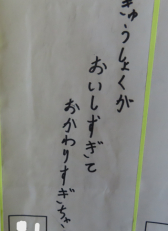 きゅうしょくが
おいしすぎて
おかわりすぎちゃ